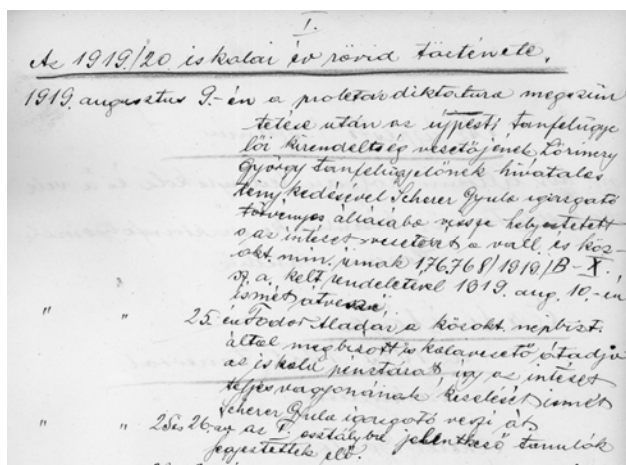 I.
Az 1919/20. iskolai év rövid története.
1919. augusztus 9.-én a proletárdiktatura megszün
tetése után az újpesti tanfelügye
lői kirendeltség vezetőjének Lőrinczy
György tanfelügyelőnek hivatalos
ténykedésével Scherer Gyula igazgató
törvényes állásába vissza helyeztetett
s az intézet vezetését a vall. és köz-
okt. min. urnak 176.768/1919/B-X.
sz. a. kelt rendeletével 1919. aug. 10.-én
ismét átveszi.
" " 25.-én Fodor Aladár a közokt. népbizt.
által megbizott iskolavezető átadja
az iskola pénztárát, úgy az intézet
teljes vagyonának kezelését ismét
Scherer Gyula igazgató veszi át.
" " 25 és 26.-án az I. osztályba jelentkező tanulók
jegyeztettek elő.